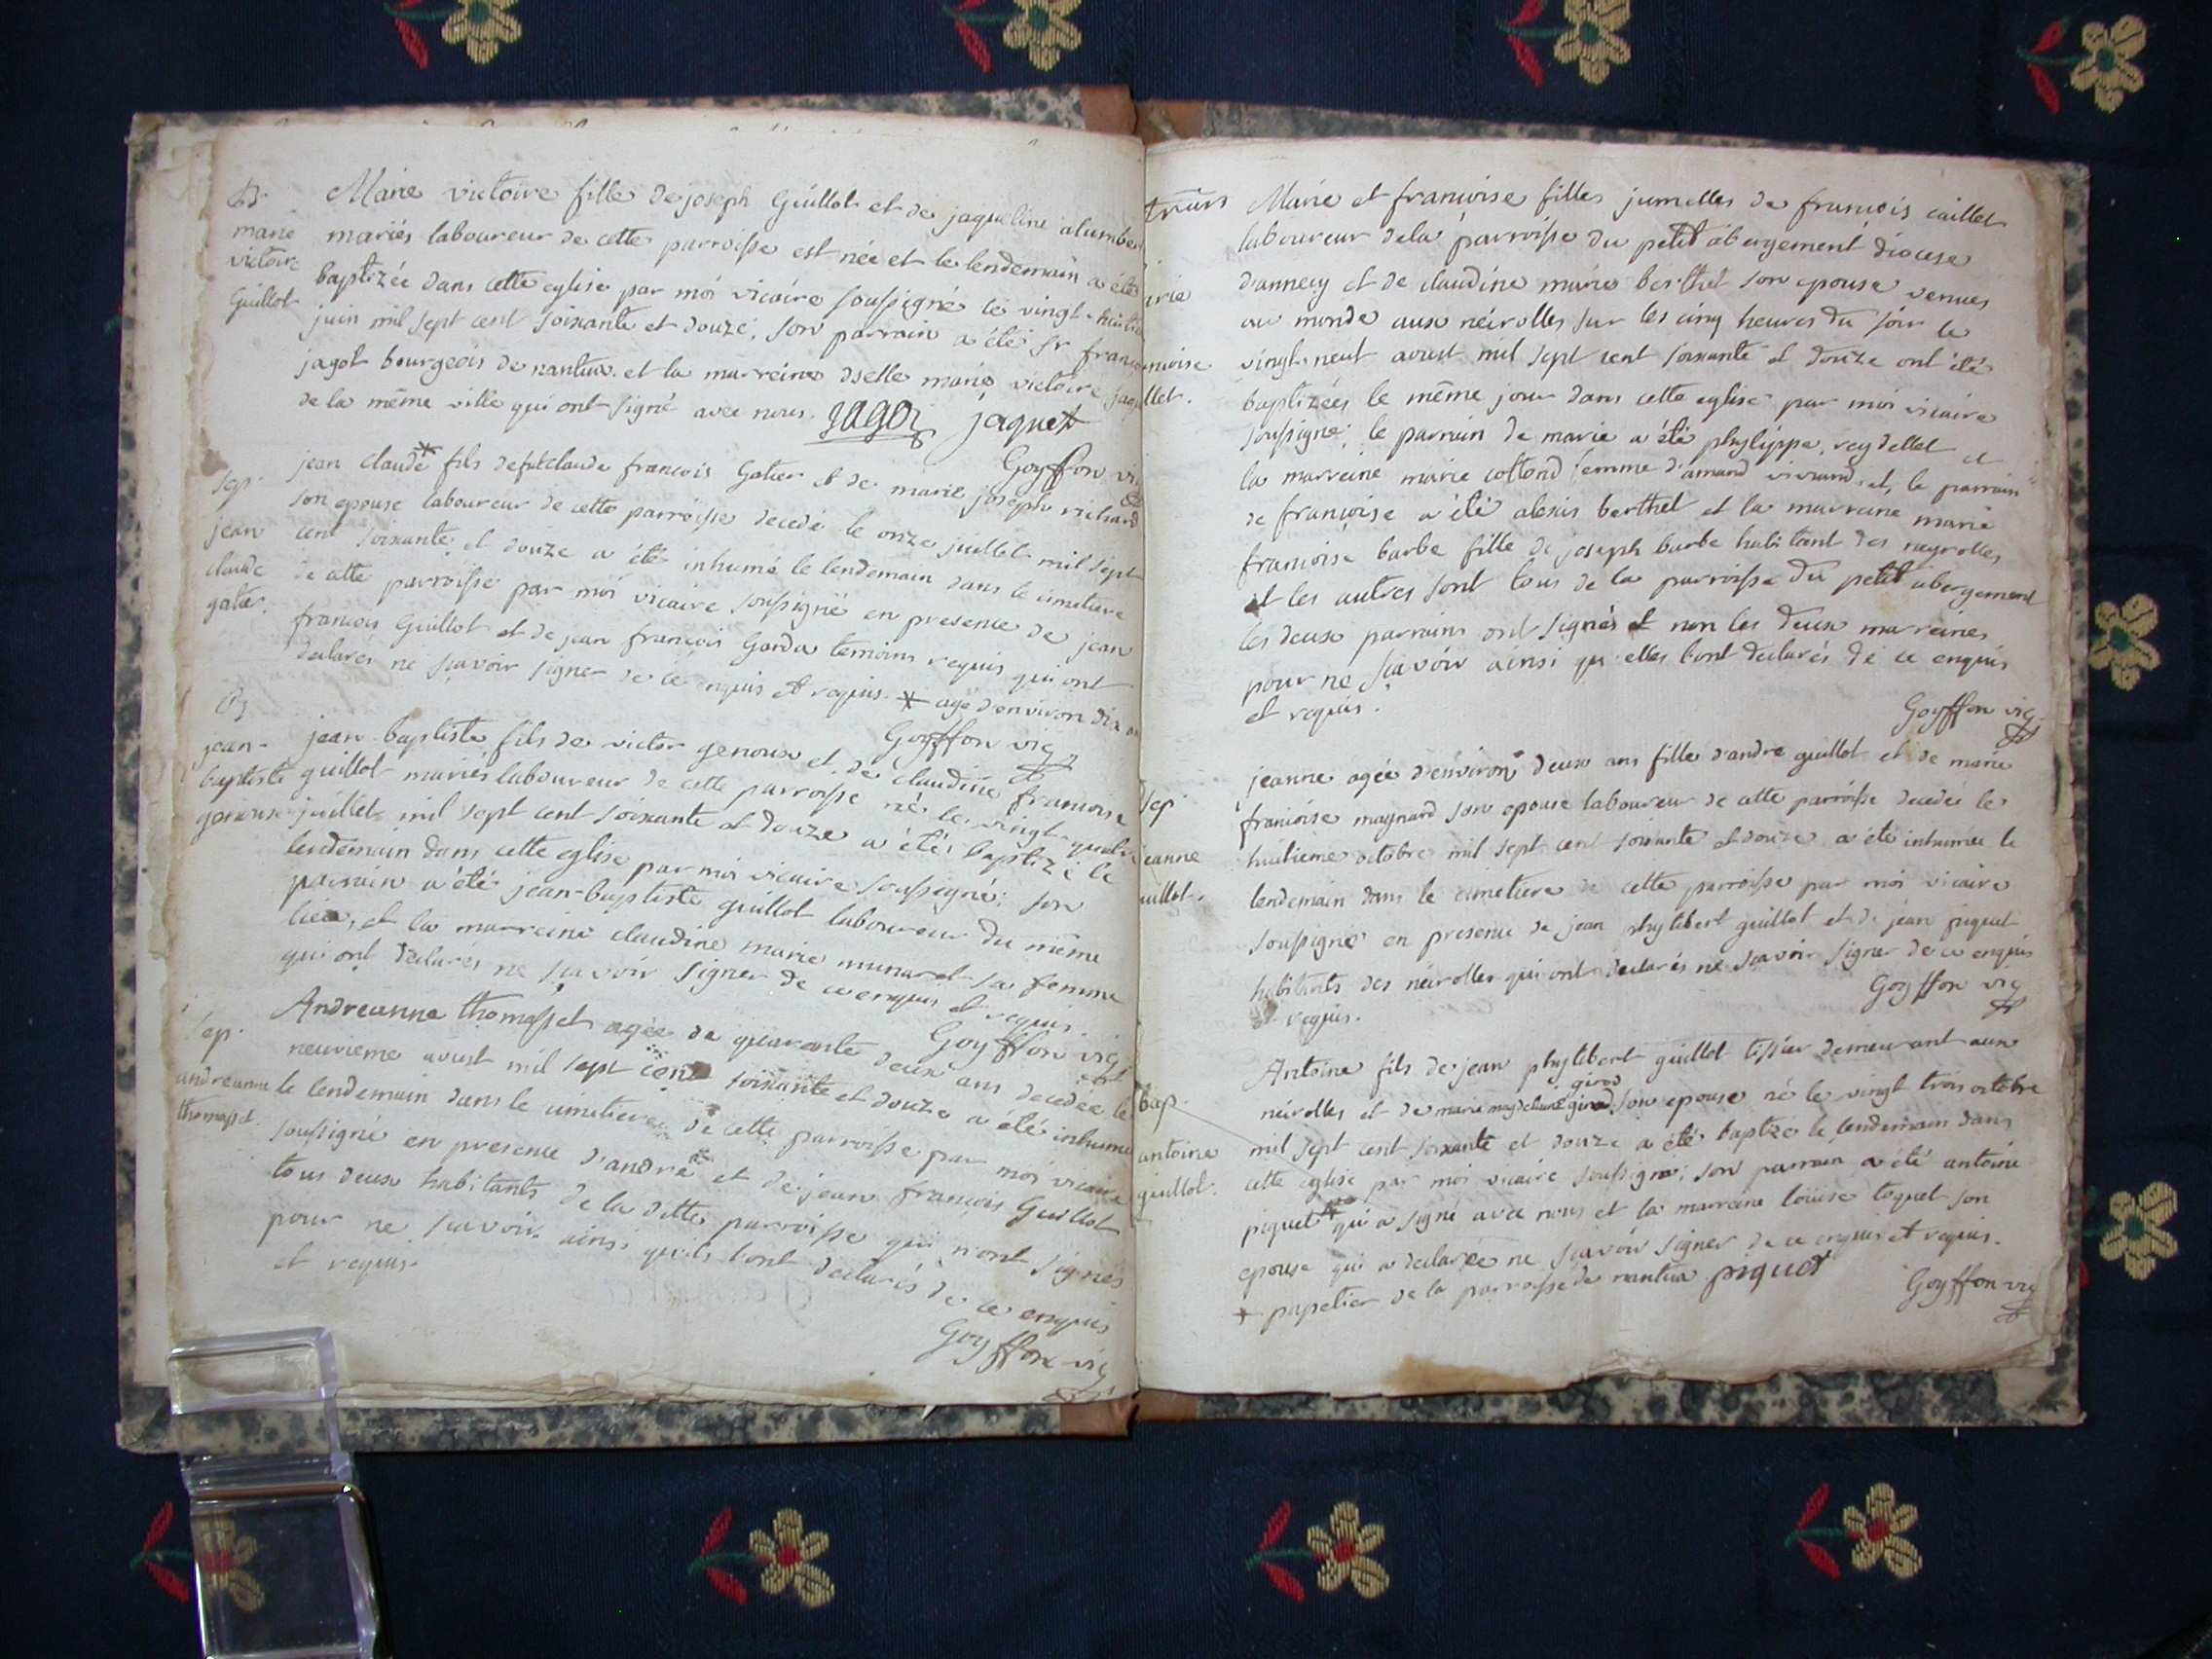 B.
marie
victoire
Guillot
Marie victoire fille de joseph Guillot et de jaqueline alumbe
mariés laboureur de cette parroisse est née et le lendemain a été
baptizée dans cette eglise par moi vicaire soussigné le vingt-huit
juin mil sept cent soixante et douze, son parrain a été sr franc
jagot bourgeois de nantua et la marreine dselle marie victoire jaq
de la même ville qui ont signé avec nous. JAGOT jaquet
Goyffon vic
sep.
jean
claude
gatier.
jean claude * fils de fut claude francois Gatier et de marie josephe richard
son epouse laboureur de cette parroisse decedé le onze juillet mil sept
cent soixante et douze a été inhumé le lendemain dans le cimetiere
de cette parroisse par moi vicaire soussigné en presence de jean
francois Guillot et de jean francois Garda temoins requis qui ont
declarés ne sçavoir signer de ce enquis et requis. * agé d'environ dix
Goyffon vic
B
jean-
baptiste
genoux
jean-baptiste fils de victor genoux et de claudine francoise
guillot mariés laboureur de cette parroisse né le vingt-quatre
juillet mil sept cent soixante et douze a été baptizé le
lendemain dans cette eglise par moi vicaire soussigné; son
parrain a été jean-baptiste guillot laboureur du même
lieu, et la marreine claudine marie munaret sa femme
qui ont declarés ne sçavoir signer de ce enquis et requis.
Goyffon vic
sep.
andreanne
thomasset.
Andreanne thomasset agée de quarante deux ans decedée le
neuvieme aoust mil sept cent soixante et douze a été inhumé
le lendemain dans le cimetiere de cette parroisse par moi vicaire
soussigné en presence d'andré et de jean francois Guillot
tous deux habitants de la ditte parroisse qui n'ont signés
pour ne sçavoir ainsi qu'ils l'ont declarés de ce enquis
et requis.
Goyffon vic
Marie et françoise filles jumelles de francois caillet
laboureur dela parroisse du petit abergement diocese
d'annecy et de claudine marie berthet son epouse venues
au monde aux neirolles sur les cinq heures du soir le
vingt-neuf aoust mil sept cent soixante et douze ont été
baptizées le même jour dans cette eglise par moi vicaire
soussigné; le parrain de marie a été phylippe reydellet et
la marreine marie cottend femme d'amand vivrand, et le parrain
de françoise a été alexis berthet et la marreine marie
françoise barbe fille de joseph barbe habitant des neyrolles
et les autres sont tous de la parroisse du petit abergement
les deux parrains ont signés et non les deux marreines
pour ne sçavoir ainsi qu'elles l'ont declarés de ce enquis
et requis.
Goyffon vic
sep.
jeanne
uillot.
jeanne agée d'environ deux ans fille d'andré guillot et de marie
françoise maynard son epouse laboureur de cette parroisse decedée le
huitieme octobre mil sept cent soixante et douze a été inhumée le
lendemain dans le cimetiere de cette parroisse par moi vicaire
soussigné en presence de jean phylibert guillot et de jean piquet
habitants des neirolles qui ont declarés ne sçavoir signer de ce enquis
et requis.
Goyffon vic
bap.
antoine
guillot.
Antoine fils de jean phylibert guillot tissier demeurant aux
neirolles et de marie magdelaine girod son epouse né le vingt trois octobre
mil sept cent soixante et douze a été baptizé le lendemain dans
cette eglise par moi vicaire soussigné; son parrain a été antoine
piquet * qui a signé avec nous et la marreine loüise toquet son
epouse qui a declarée ne sçavoir signer de ce enquis et requis.
* papetier de la parroisse de nantua piquet
Goyffon vic